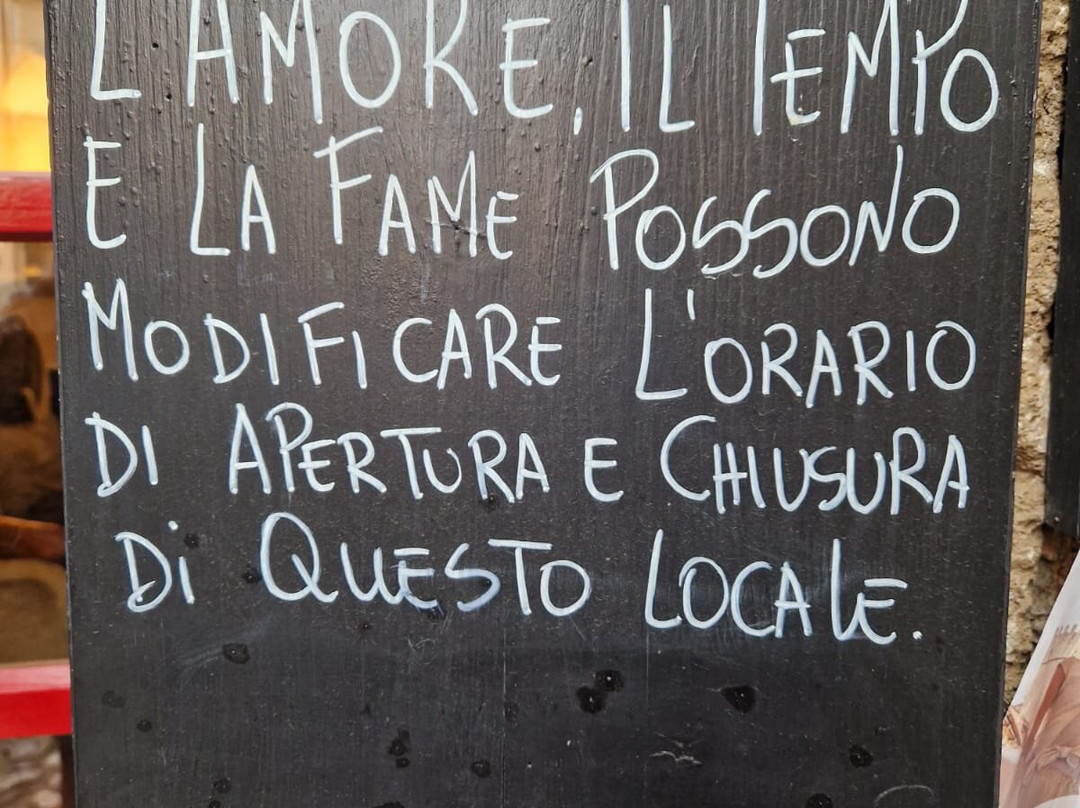 L'AMORE, IL TEMPO
E LA FAME POSSONO
MODIFICARE L'ORARIO
DI APERTURA E CHIUSURA
Di QUESTO LOCALE.